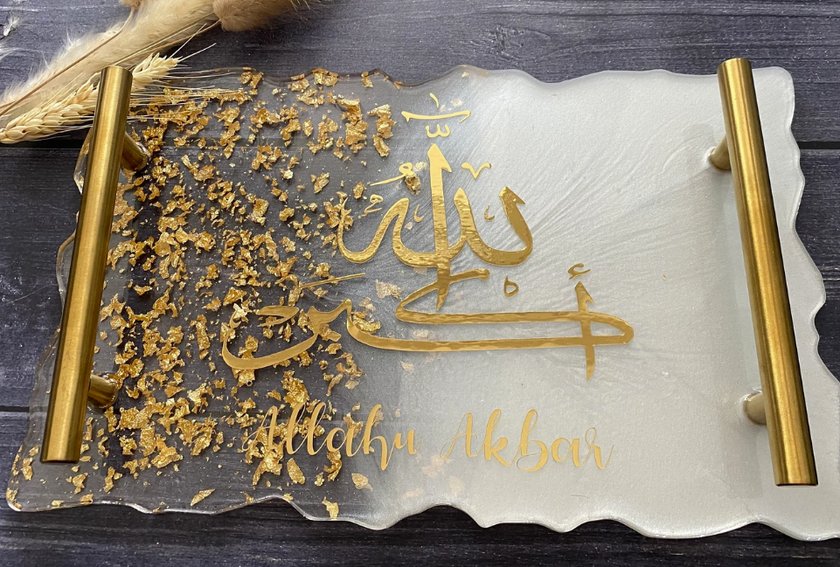 الله
أكبر
Allahu Akbar